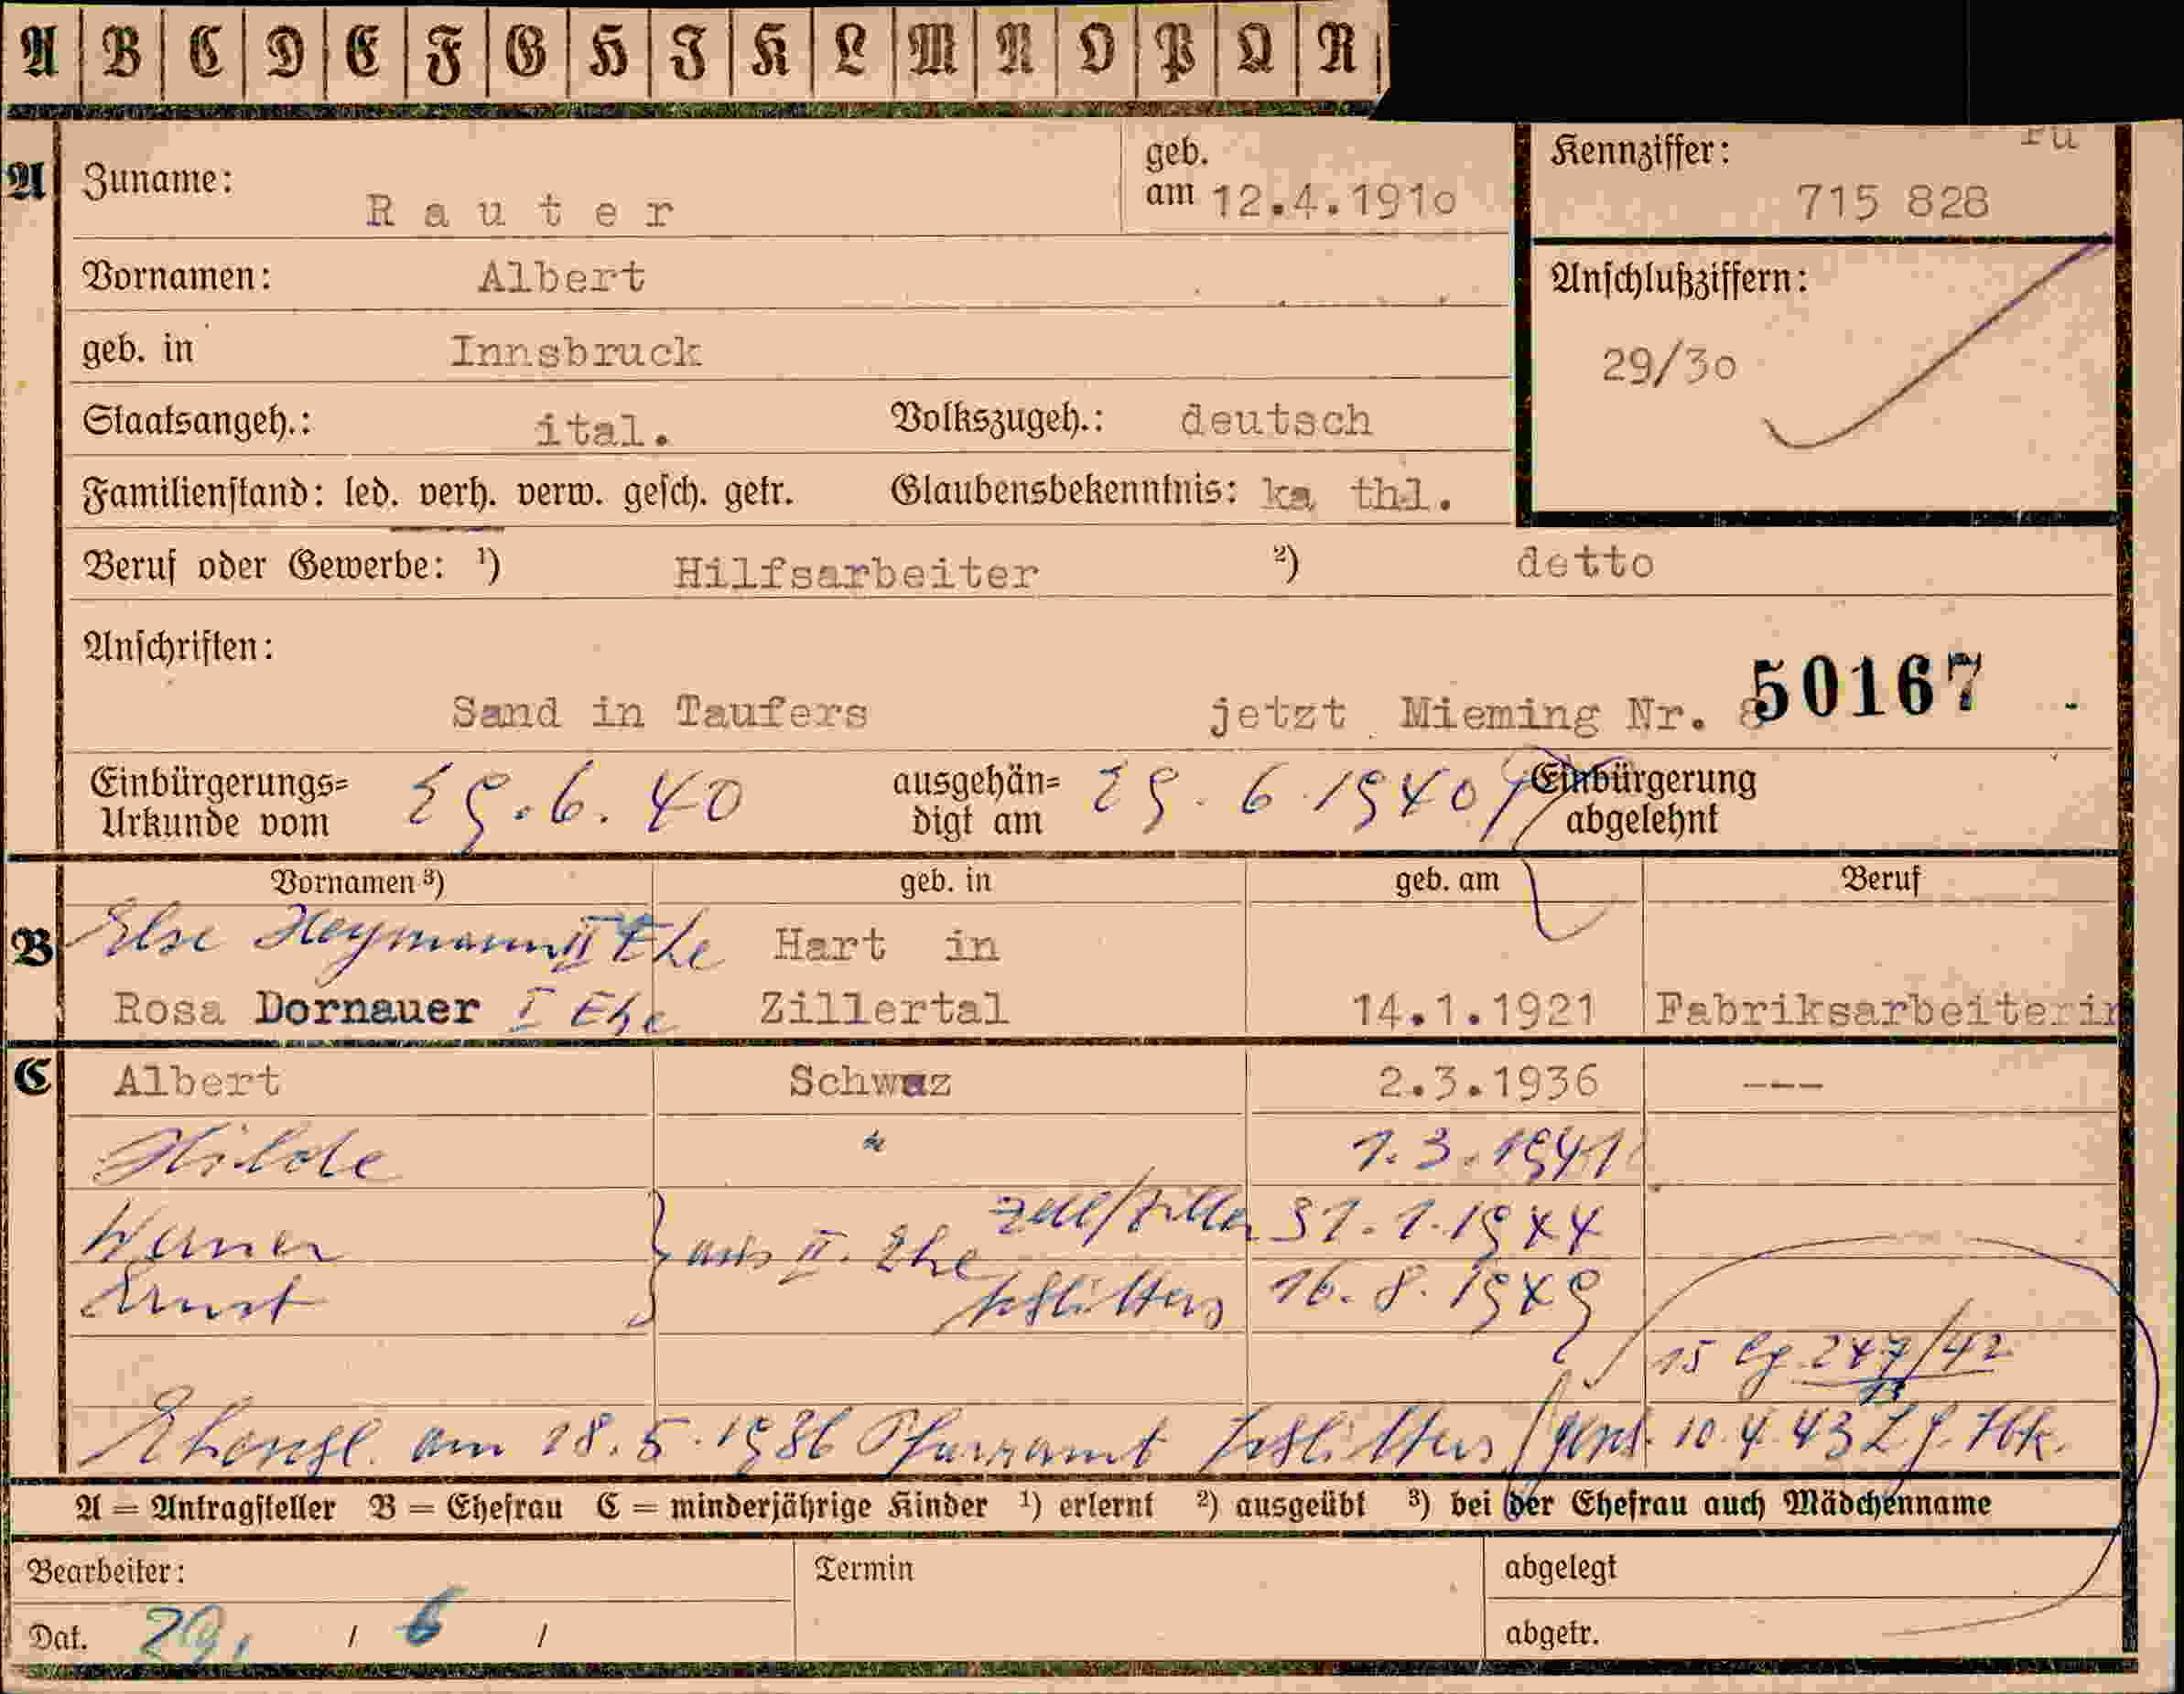 A B C D E F G H J K L M N O P Q R
A Zuname: Rauter geb. am 12.4.1910
Kennziffer: 715 828
Vornamen: Albert
Anschlußziffern:
29/30
geb. in Innsbruck
Staatsangeh.: ital. Volkszugeh.: deutsch
Familienstand: led. verh. verw. gesch. getr. Glaubensbekenntnis: ka thl.
Beruf oder Gewerbe: ¹) Hilfsarbeiter ²) detto
Anschriften:
Sand in Taufers jetzt Mieming Nr. 50167
Einbürgerungs= Urkunde vom 29.6.40 ausgehän= digt am 29.6.1940 Einbürgerung abgelehnt
Vornamen ³) geb. in geb. am Beruf
B Else Heymann II Ehe Hart in
Rosa Dornauer I Ehe Zillertal 14.1.1921 Fabriksarbeiterin
C Albert Schwaz 2.3.1936 ---
Hilde " 1.3.1941
Werner } aus II. Ehe Zell/Ziller 31.1.1944
Ernst Schlitters 16.8.1949
15 Cg 247/42
Ehesschl. am 18.5.1936 Pfarramt Schlitters / gesch. 10.4.43 L.G. Ibk.
A = Antragsteller B = Ehefrau C = minderjährige Kinder ¹) erlernt ²) ausgeübt ³) bei der Ehefrau auch Mädchenname
Bearbeiter: Termin abgelegt
Dat. 29. / 6 / abgetr.